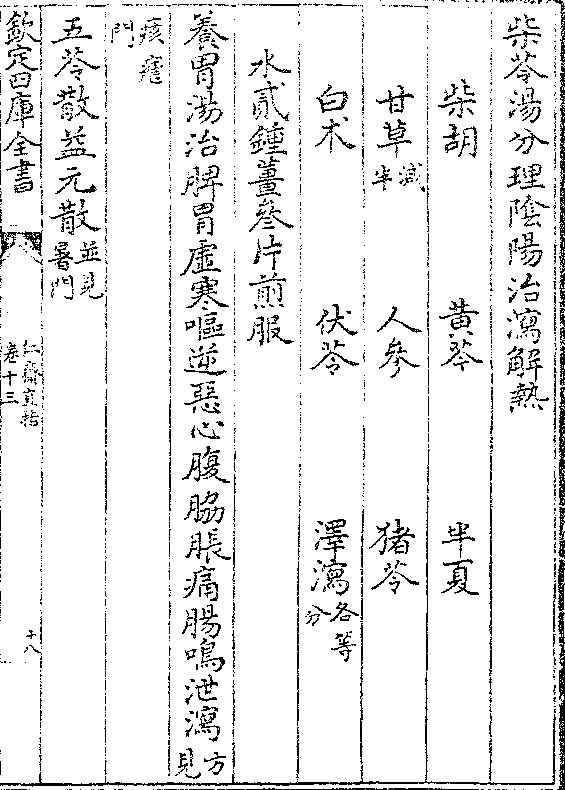 柴苓湯分理陰陽治瀉解熱
柴胡 黃芩 半夏
甘草減半 人參 猪苓
白朮 伏苓 澤瀉各等分
水貳鍾薑叄片煎服
養胃湯治脾胃虛寒嘔逆惡心腹脇脹痛腸鳴泄瀉方見
痎瘧門
五苓散益元散並見暑門
欽定四庫全書
仁齋直指
卷十三
十八